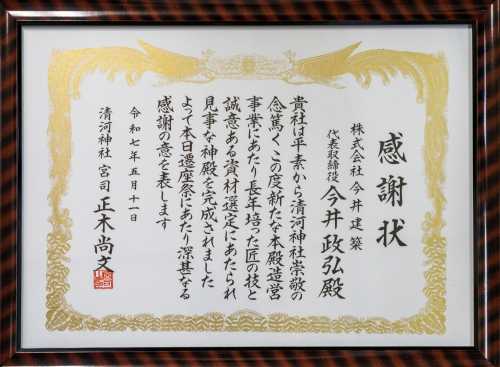 感謝状
株式会社 今井建築
代表取締役 今井政弘殿
貴社は平素から清河神社崇敬の
念篤くこの度新たな本殿造営
事業にあたり長年培った匠の技と
誠意ある資材選定にあたられ
見事な神殿を完成されました
よって本日遷座祭にあたり深甚なる
感謝の意を表します
令和七年五月十一日
清河神社 宮司 正木尚文